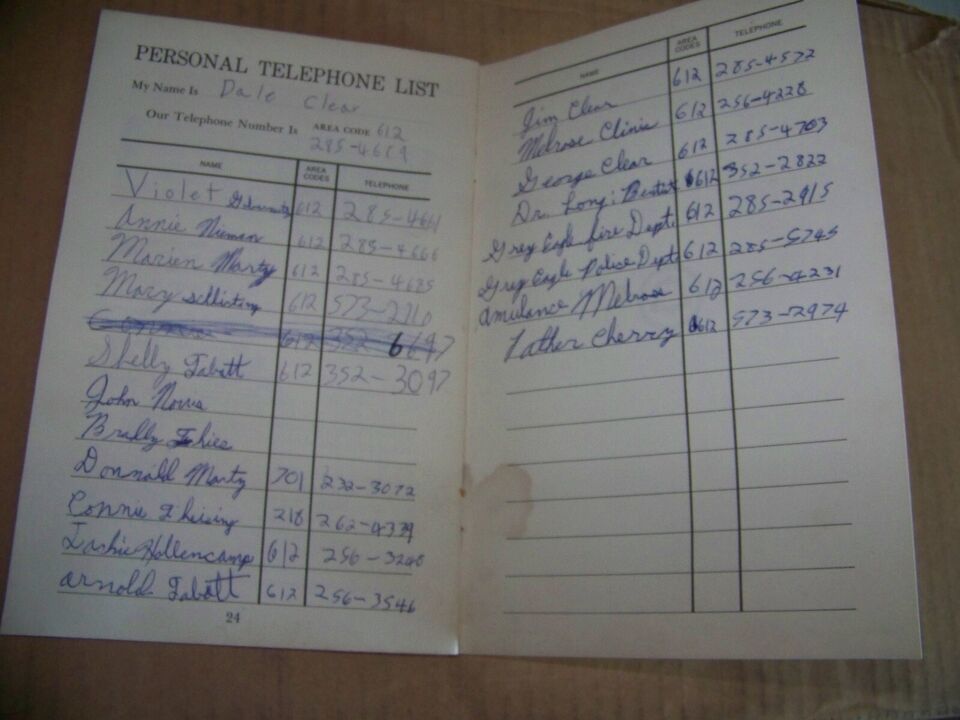 PERSONAL TELEPHONE LIST
My Name Is Dale Clear
Our Telephone Number Is AREA CODE 612
285-4689
NAME AREA CODES TELEPHONE
Violet 612 285-4611
Annie Nieman 612 285-4666
Marien Marty 612 285-4685
Mary 612 573-2210
612 352 6697
Shelly Tabatt 612 352-3097
John Norris
Brally Thies
Donnald Marty 701 232-3072
Connie Theising 218 262-4339
Jackie Hollencamp 612 256-3240
Arnold Tabatt 612 256-3546
24
NAME AREA CODES TELEPHONE
Jim Clear 612 285-4572
Melrose Clinic 612 256-4228
George Clear 612 285-4703
Dr. Long: Dentist 612 352-2822
Grey Eagle fire Dept. 612 285-2915
Grey Eagle Police Dept. 612 285-5745
Amulance Melrose 612 256-4231
Father Cherry 612 573-2974